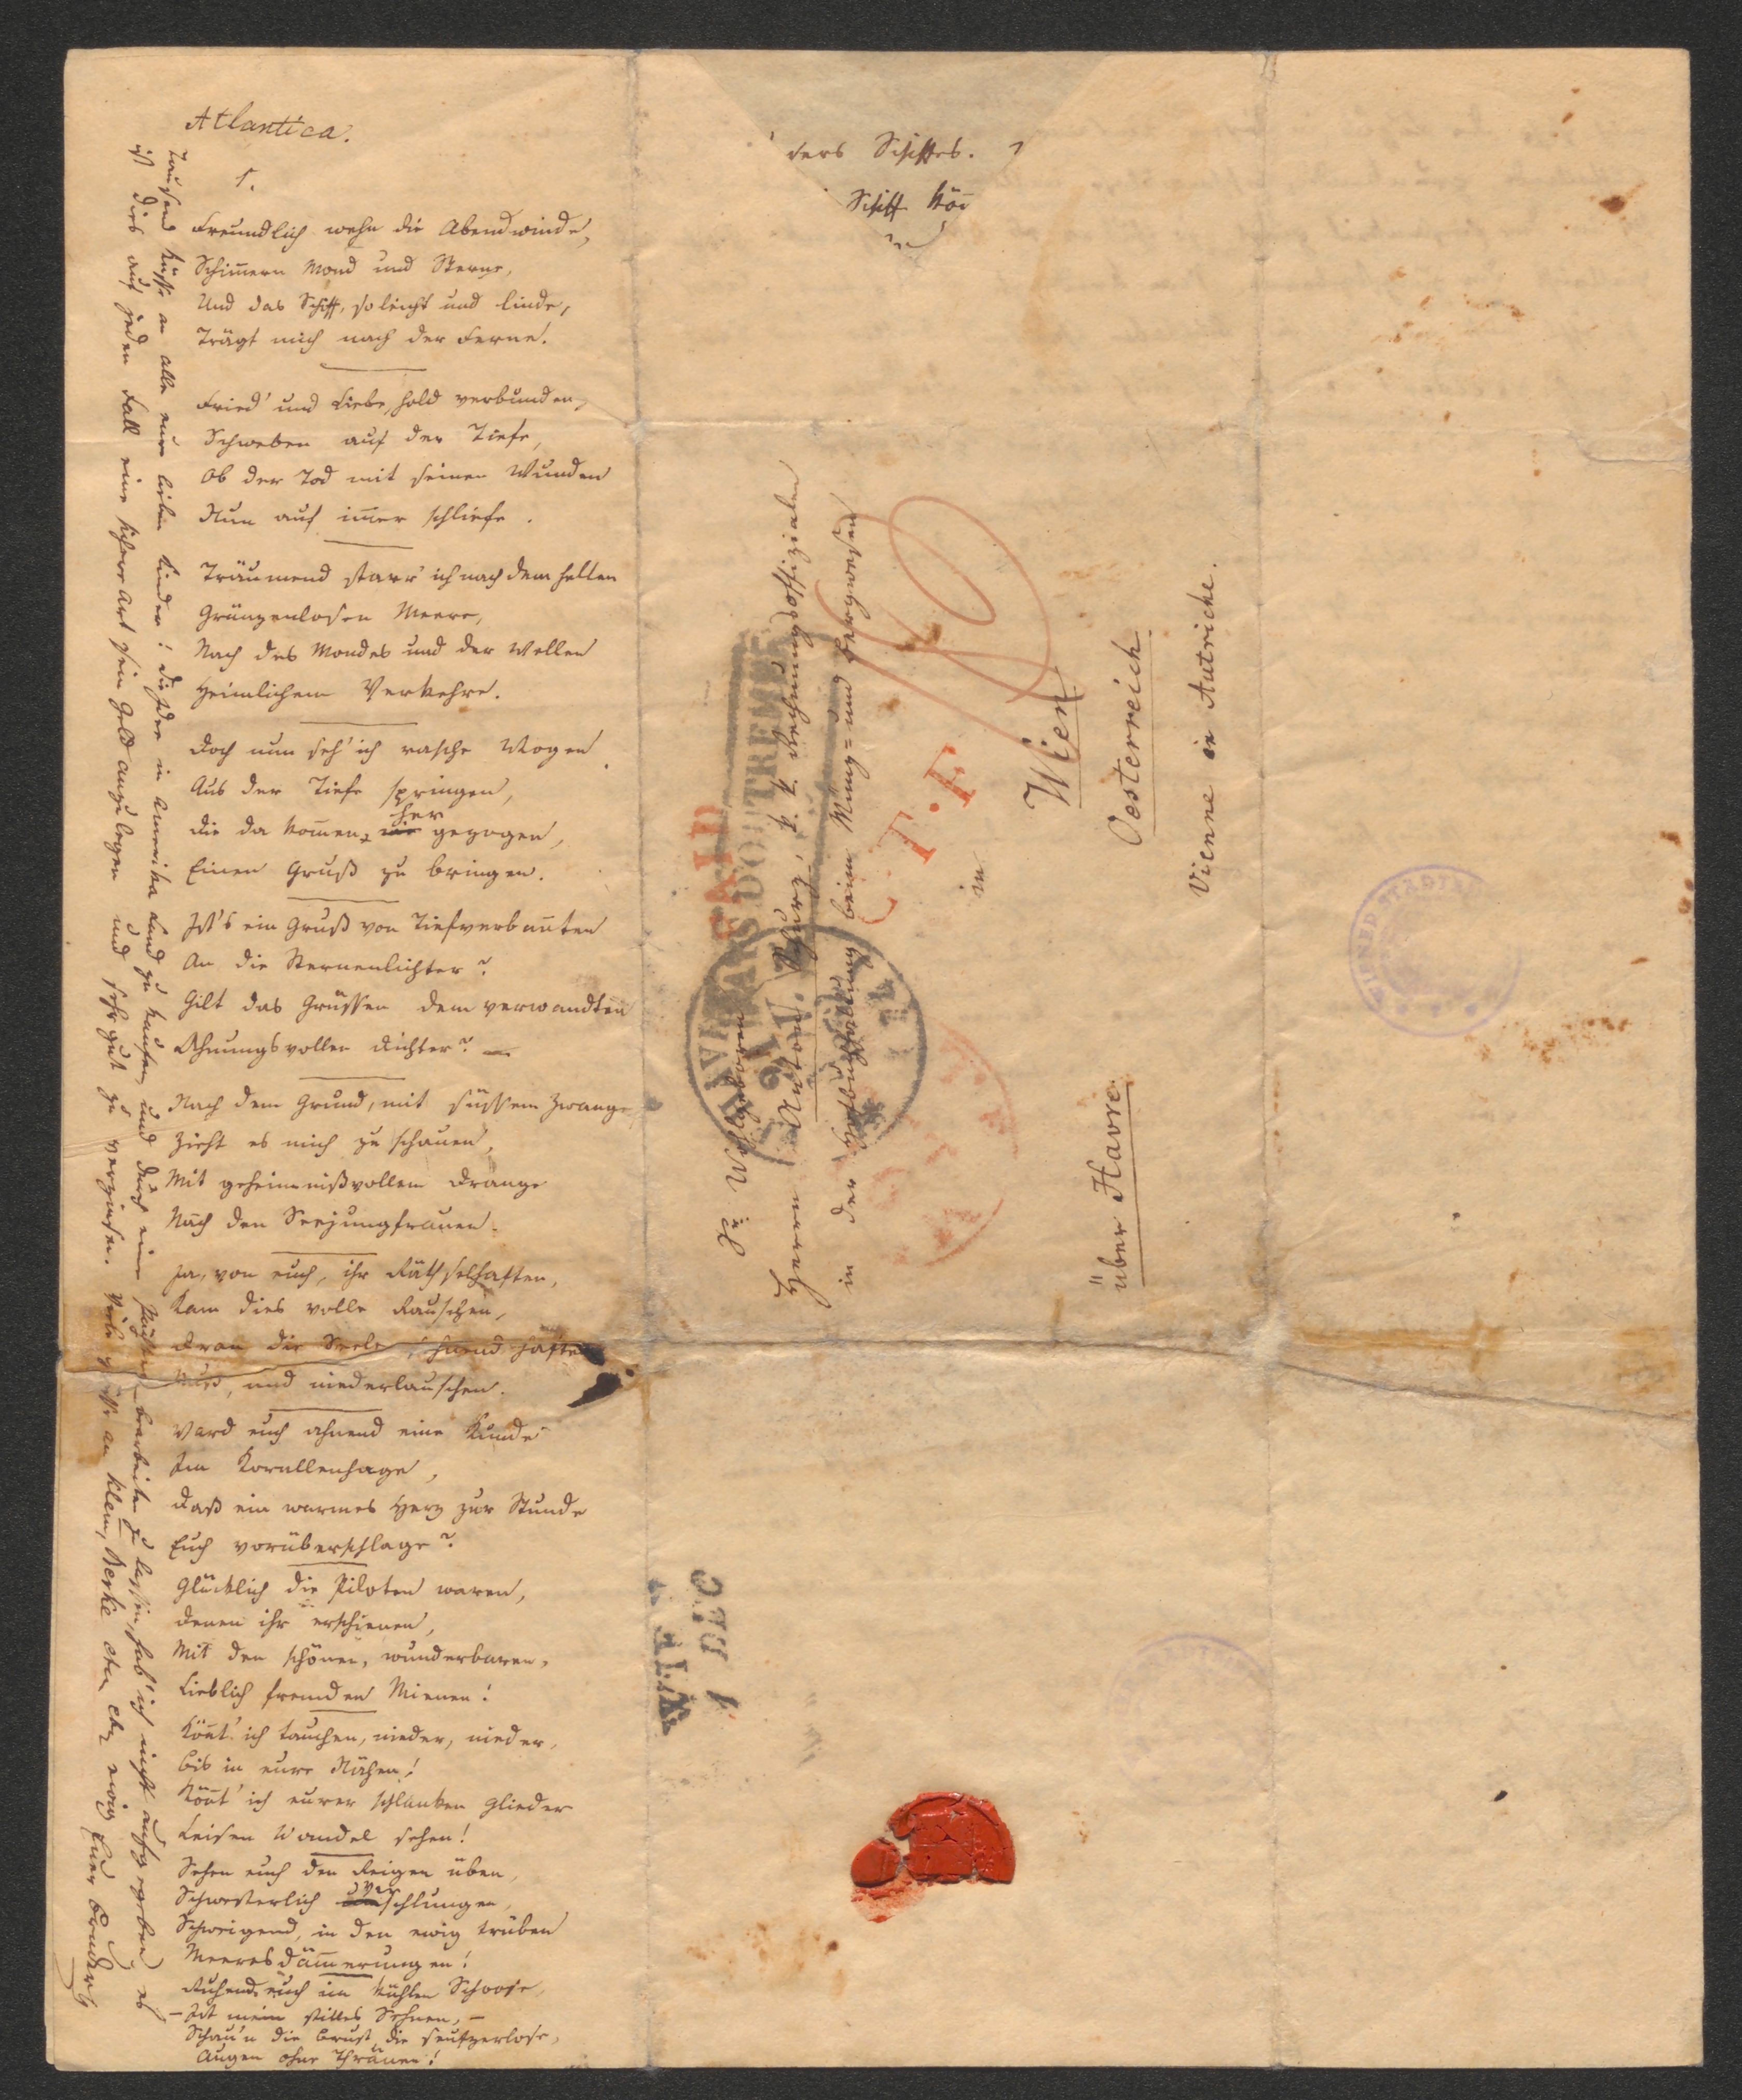 Atlantica.
1.
Freundlich wehn die Abendwinde,
Schim̄ern Mond und Sterne,
Und das Schiff, so leicht und linde,
Trägt mich nach der Ferne.
Fried' und Liebe, hold verbunden,
Schweben auf der Tiefe,
Ob der Tod mit seinen Wunden
Nun auf im̄er schliefe.
Träumend starr' ich nach dem hellen
Gränzenlosen Meere,
Nach des Mondes und der Wellen
Heimlichem Verkehre.
Doch nun seh' ich rasche Wogen
Aus der Tiefe springen,
Die da kom̄en, her gezogen,
Einen Gruß zu bringen.
Ist's ein Gruß von Tiefverban̄ten
An die Sternenlichter?
Gilt das Grüssen dem verwandten
Ahnungsvollen Dichter? –
Nach dem Grund, mit süssem Zwange,
Zieht es mich zu schauen,
Mit geheimnißvollem Drange
Nach den Seejungfrauen.
Ja, von euch, ihr Räthselhaften,
Kam dies volle Rauschen,
Dran die Seele, sehnend haften
Muß, und niederlauschen.
Ward euch ahnend eine Kunde
Im Korallenhage,
Daß ein warmes Herz zur Stunde
Euch vorüberschlage?
Glücklich die Piloten waren,
Denen ihr erschienen,
Mit den schönen, wunderbaren,
Lieblich fremden Mienen!
Kön̄t' ich tauchen, nieder, nieder,
Bis in eure Nähen!
Kön̄t' ich eurer schlanken Glieder
Leisen Wandel sehen!
Sehen euch den Reigen üben,
Schwesterlich verschlungen,
Schweigend, in den ewig trüben
Meeresdäm̄erungen!
Ruhend euch im kühlen Schoose,
– Ist mein stilles Sehnen, –
Schau'n die Brust, die seufzerlose,
Augen ohne Thränen!
Tausend Küsse an alle eure lieben Kinder! Die Idee in Amerika Land zu kaufen, und durch einen Pächter bearbeiten zu lassen, hab' ich nicht aufgegeben, es
ist dies auf jeden Fall eine sichere Art sein Geld anzulegen und sehr gut zu verzinsen. Viele Grüße an Klemm, Kerke etc. etc. ewig Euer Bruder
ders Schiffes.
Schiff kön̄
Sr Wohlgeboren
Herrn Anton Schurz, k. k. Rechnungsoffizialen
in der Hofbuchhaltung beim Münz= und Bergwesen
in
Wien
Oesterreich
Vienne in Autriche.
über Havre.
PAID
C.T.F
10
OCT
1
WIENER STÄDTISCHE